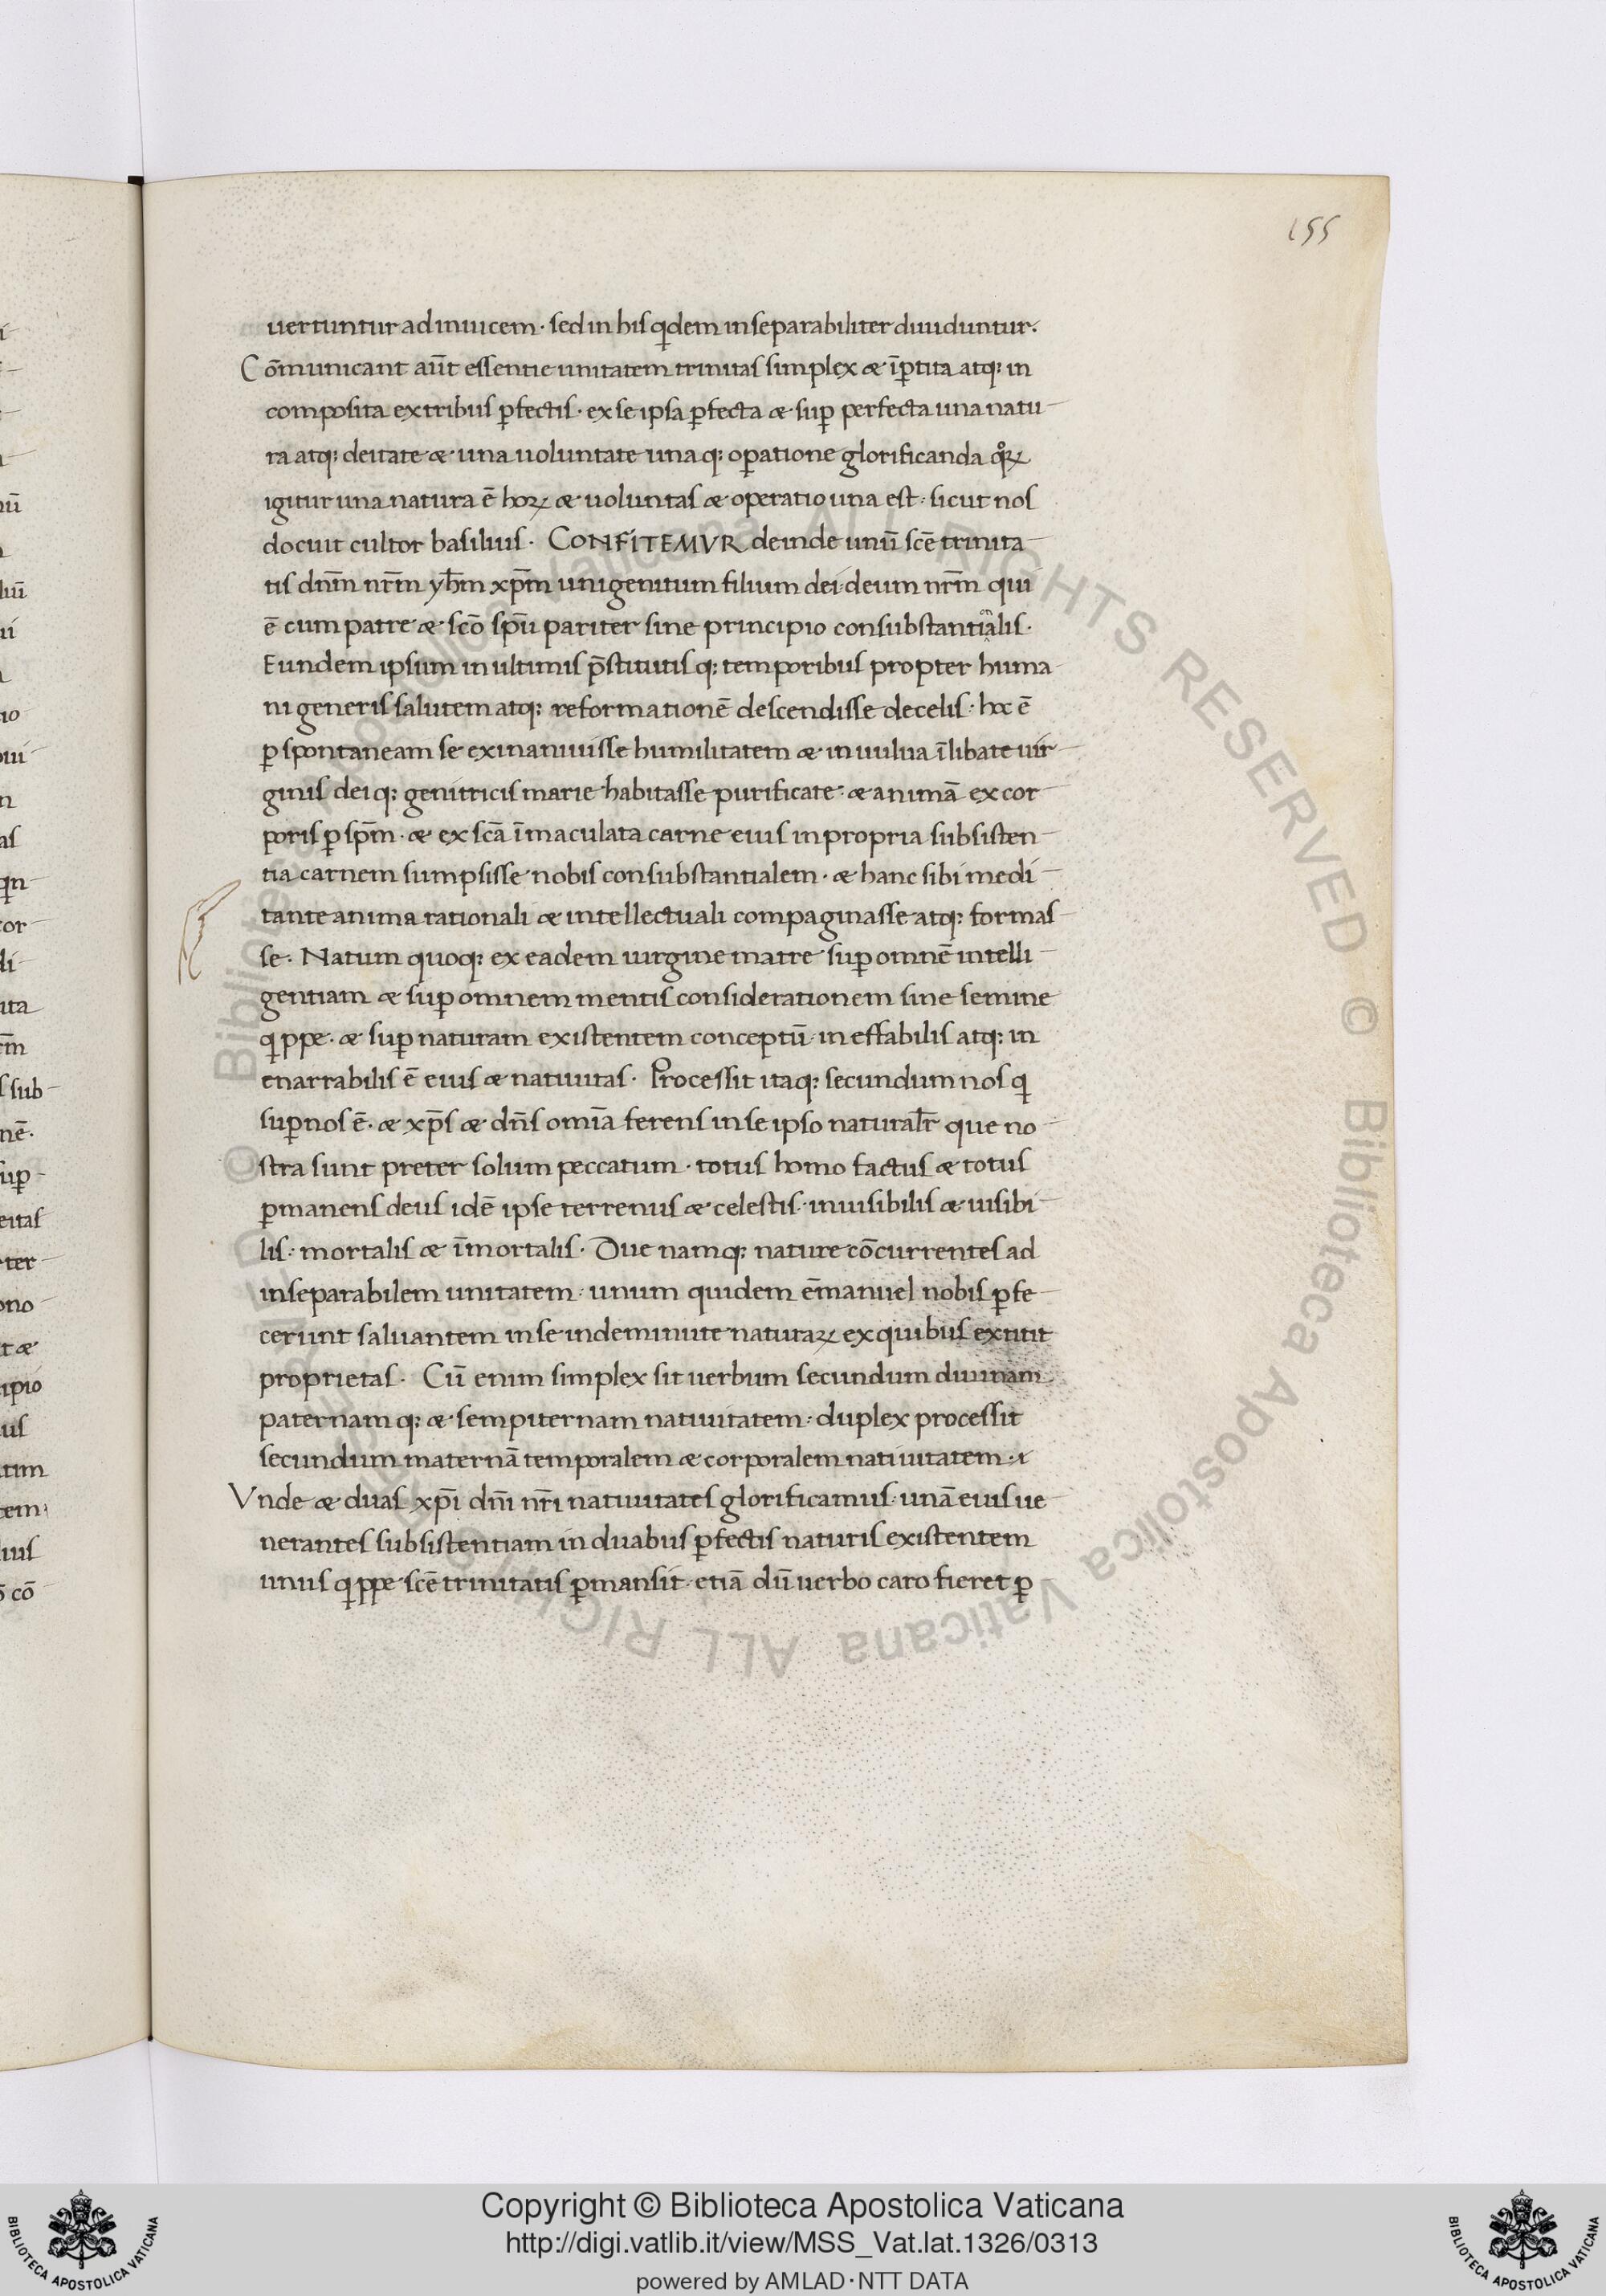 155
uertuntur ad inuicem · sed in his qdem inseparabiliter diuiduntur.
Cōmunicant aūt essentie unitatem trinitas simplex æ īptita atq: in
composita ex tribus pfectis · ex se ipsa pfecta æ sup perfecta una natu
ra atq: deitate æ una uoluntate una q: opatione glorificanda qoꝝ
igitur una natura ē hoꝝ æ uoluntas æ operatio una est · sicut nos
docuit cultor basilius · CONFITEMVR deinde unū scē trinita
tis dnm̄ nrm̄ yħm xp̄m unigenitum filium dei · deum nrm̄ qui
ē cum patre æ scō spū pariter sine principio consubstantialis ·
Eundem ipsum in ultimis p̄stitutis q: temporibus propter huma
ni generis salutem atq: reformationē descendisse de celis · hoc ē
ꝑ spontaneam se exinaniuisse humilitatem æ in uulua īlibate uir
ginis dei q: genitricis marie habitasse purificate · æ animā ex cor
poris ꝑ spm̄ · æ ex scā īmaculata carne eius in propria subsisten
tia carnem sumpsisse nobis consubstantialem · æ hanc sibi medi
tante anima rationali æ intellectuali compaginasse atq: formas
se · Natum quoq: ex eadem uirgine matre suꝑ omnē intelli
gentiam æ suꝑ omnem mentis considerationem sine semine
qppe · æ suꝑ naturam existentem conceptū · ineffabilis atq: in
enarrabilis ē eius æ natiuitas · Processit itaq: secundum nos q
suꝑ nos ē · æ xp̄s æ dn̄s omīa ferens in se ipso naturalr̄ que no
stra sunt preter solum peccatum · totus homo factus æ totus
ꝑmanens deus idē ipse terrenus æ celestis · inuisibilis æ uisibi
lis · mortalis æ īmortalis · Due namq: nature cōcurrentes ad
inseparabilem unitatem · unum quidem ēmanuel nobis ꝑfe
cerunt saluantem in se indeminute naturaꝝ ex quibus extitit
proprietas · Cū enim simplex sit uerbum secundum diuinam
paternam q: æ sempiternam natiuitatem · duplex processit
secundum maternā temporalem æ corporalem natiuitatem ·
Vnde æ duas xp̄i dn̄i nr̄i natiuitates glorificamus · unā eius ue
nerantes subsistentiam in duabus ꝑfectis naturis existentem
unus qppe scē trinitatis ꝑmansit · etiā dū uerbo caro fieret ꝑ
Copyright © Biblioteca Apostolica Vaticana
http://digi.vatlib.it/view/MSS_Vat.lat.1326/0313
powered by AMLAD·NTT DATA
BIBLIOTECA APOSTOLICA VATICANA
BIBLIOTECA APOSTOLICA VATICANA